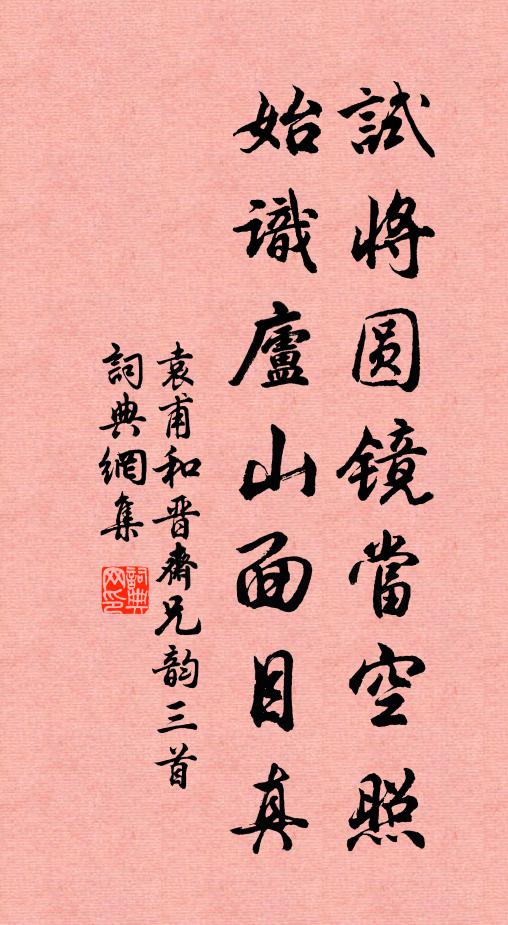 試將圆镜當空照
始識廬山面目真
袁甫和晋齋兄韵三首
詞典網集
詞典网印